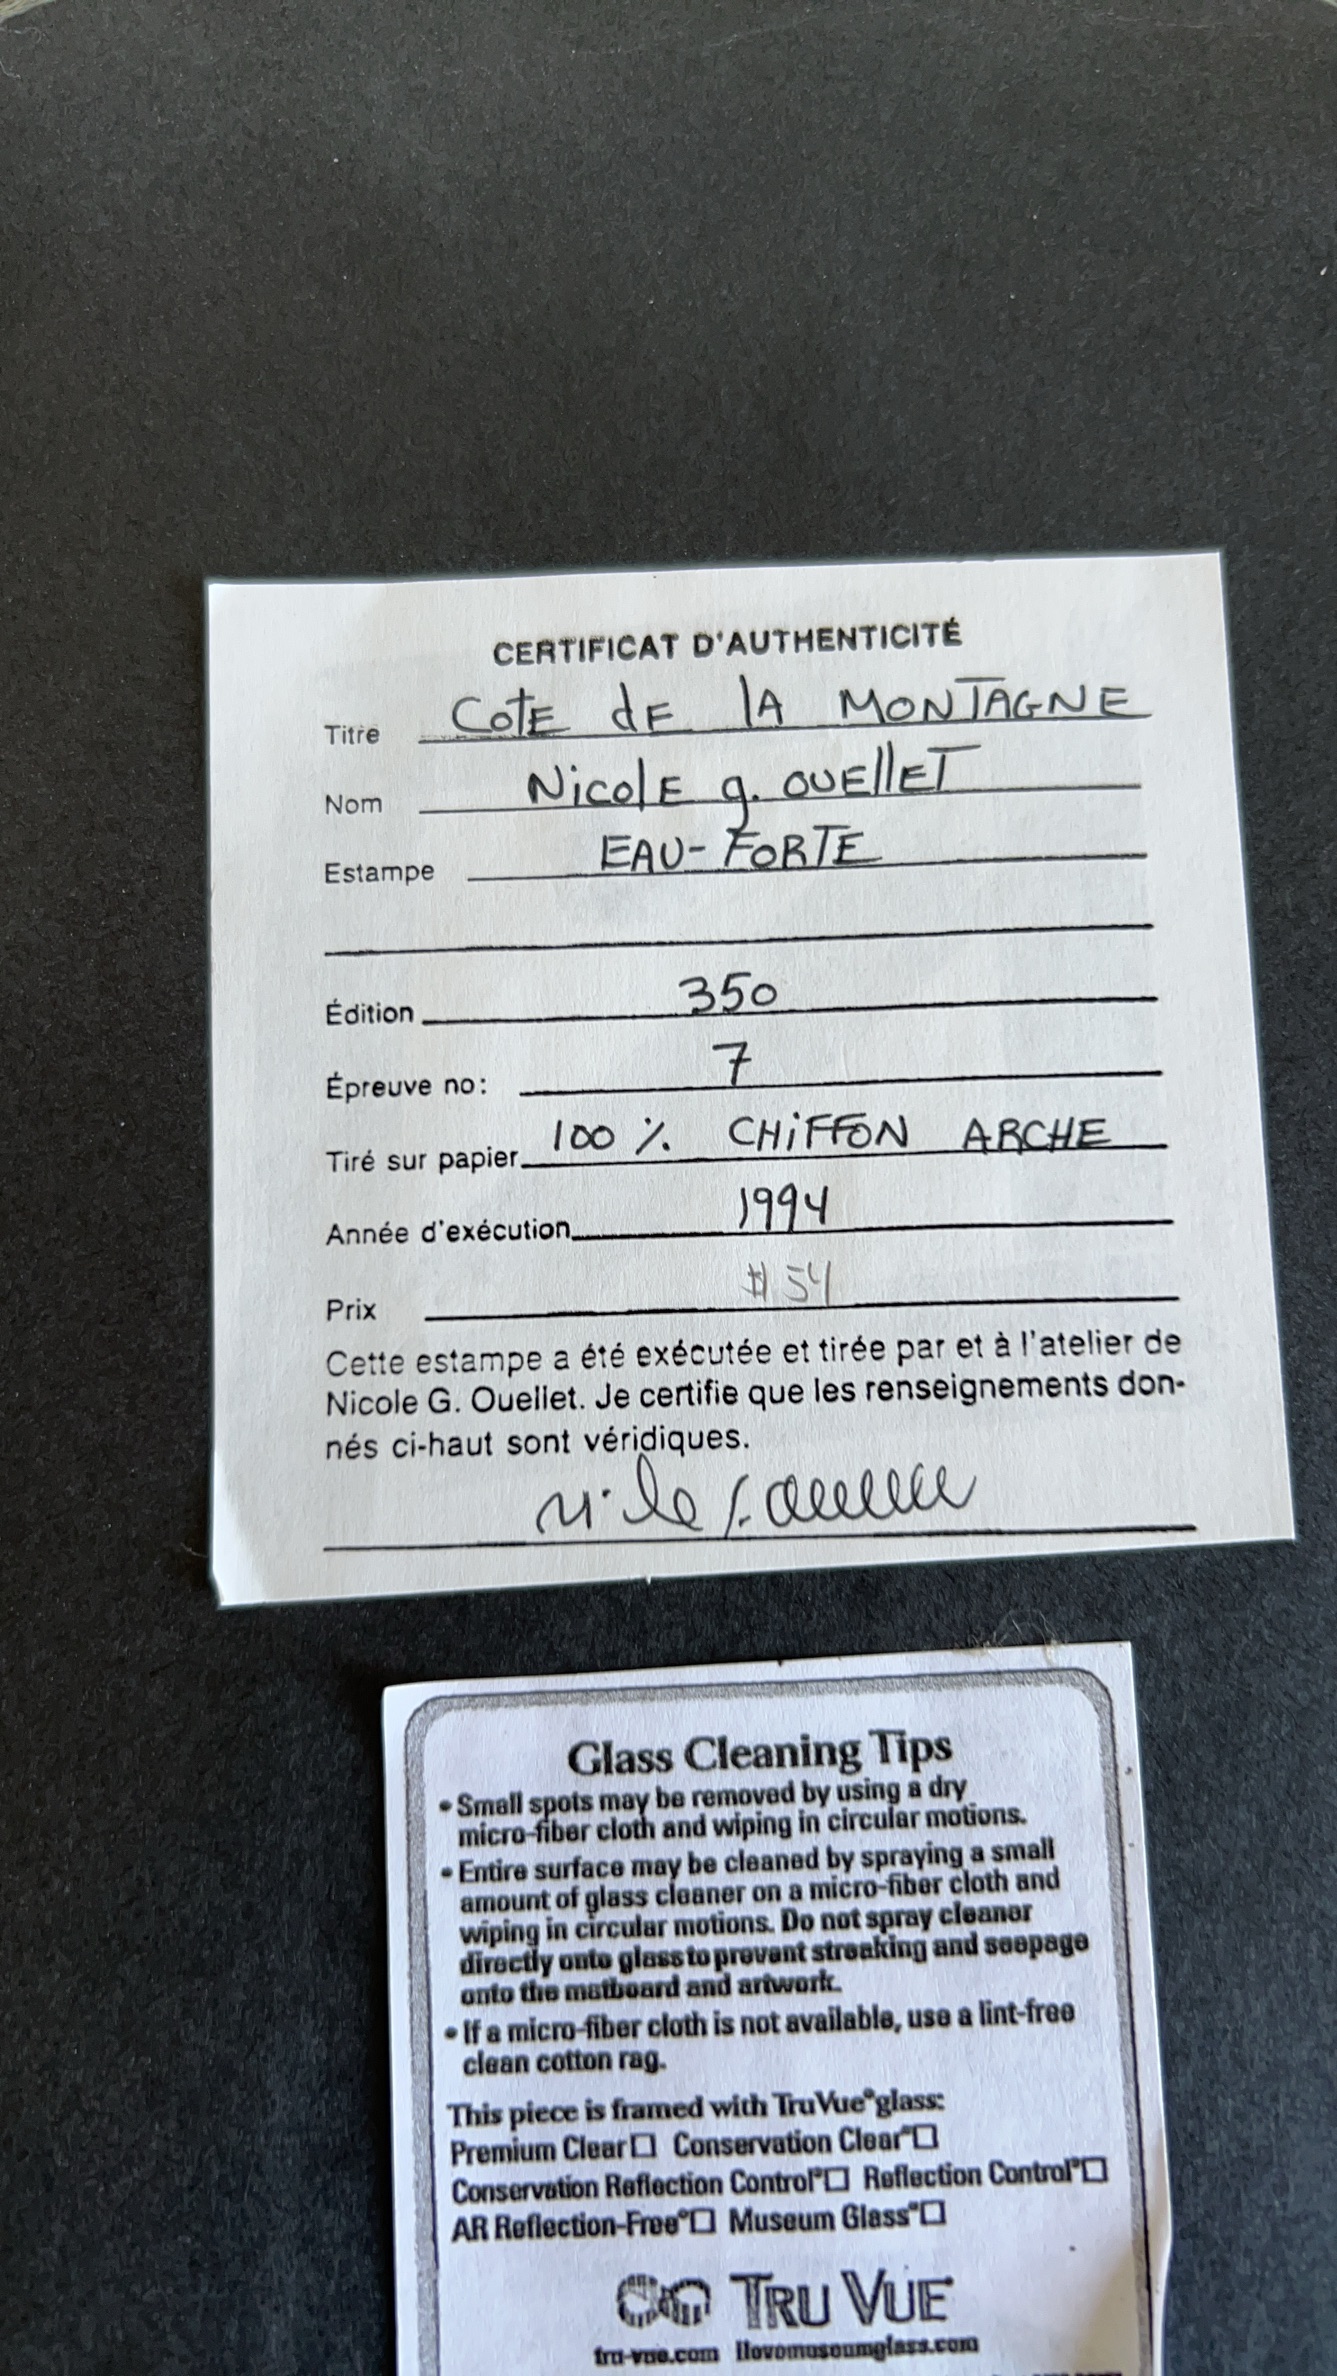 CERTIFICAT D'AUTHENTICITÉ
Titre COTE dE lA MONTAGNE
Nom NicolE g. OUEllET
Estampe EAU-FORTE
Édition 350
Épreuve no: 7
Tiré sur papier 100 % CHiFFON ARCHE
Année d'exécution 1994
Prix $54
Cette estampe a été exécutée et tirée par et à l'atelier de
Nicole G. Ouellet. Je certifie que les renseignements don-
nés ci-haut sont véridiques.
Glass Cleaning Tips
• Small spots may be removed by using a dry
micro-fiber cloth and wiping in circular motions.
• Entire surface may be cleaned by spraying a small
amount of glass cleaner on a micro-fiber cloth and
wiping in circular motions. Do not spray cleaner
directly onto glass to prevent streaking and seepage
onto the matboard and artwork.
• If a micro-fiber cloth is not available, use a lint-free
clean cotton rag.
This piece is framed with Tru Vue® glass:
Premium Clear ☐ Conservation Clear® ☐
Conservation Reflection Control® ☐ Reflection Control® ☐
AR Reflection-Free® ☐ Museum Glass® ☐
TRU VUE®
tru-vue.com ilovemuseumglass.com